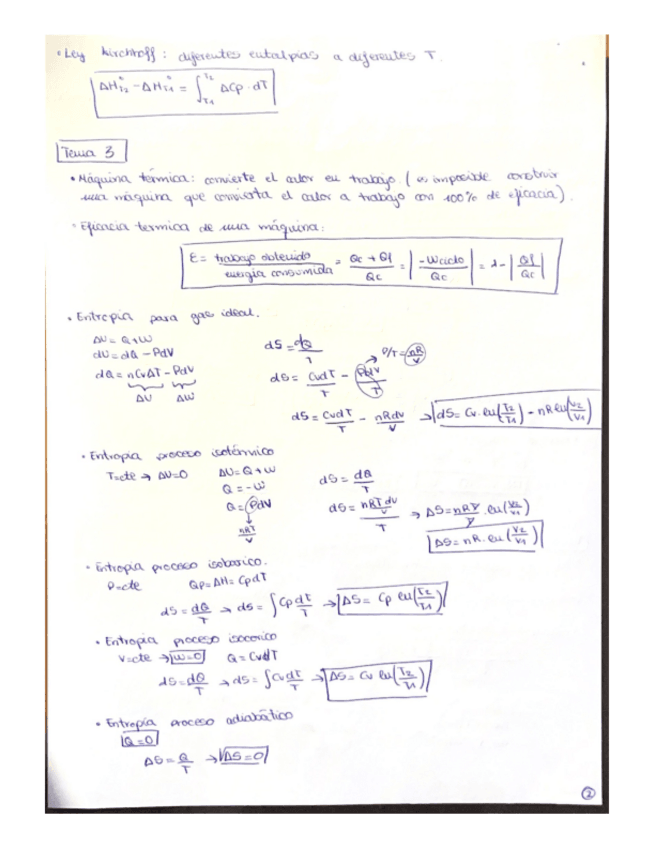 • Ley Kirchhoff: diferentes entalpías a diferentes T.
ΔH°T2 - ΔH°T1 = ∫T1^T2 ΔCp · dT
Tema 3
• Máquina térmica: convierte el calor en trabajo. (es imposible construir
una máquina que convierta el calor a trabajo con 100% de eficacia).
• Eficacia termica de una máquina:
E = trabajo obtenido / energía consumida = Qc + Qf / Qc = |-Wciclo / Qc| = 1 - |Qf / Qc|
• Entropía para gas ideal.
ΔU = Q + W
dU = dQ - PdV
dQ = nCvΔT - PdV
ΔU ΔW
dS = dQ / T
P/T = nR / V
dS = CvdT / T - PdV / T
dS = CvdT / T - nRdV / V → dS = Cv · ln(T2/T1) - nR ln(V2/V1)
• Entropía proceso isotérmico
T=cte → ΔU=0
ΔU = Q + W
Q = -W
Q = PdV
nRT / V
dS = dQ / T
dS = nRT dV / V / T → ΔS = nRT / T · ln(V2/V1)
ΔS = nR · ln(V2/V1)
• Entropía proceso isobarico.
P=cte Qp = ΔH = CpdT
dS = dQ / T → dS = ∫ Cp dT / T → ΔS = Cp ln(T2/T1)
• Entropia proceso isocorico
V=cte → W=0 Q = CvdT
dS = dQ / T → dS = ∫ CvdT / T → ΔS = Cv ln(T2/T1)
• Entropía proceso adiabático
Q=0
ΔS = Q / T → ΔS=0
2